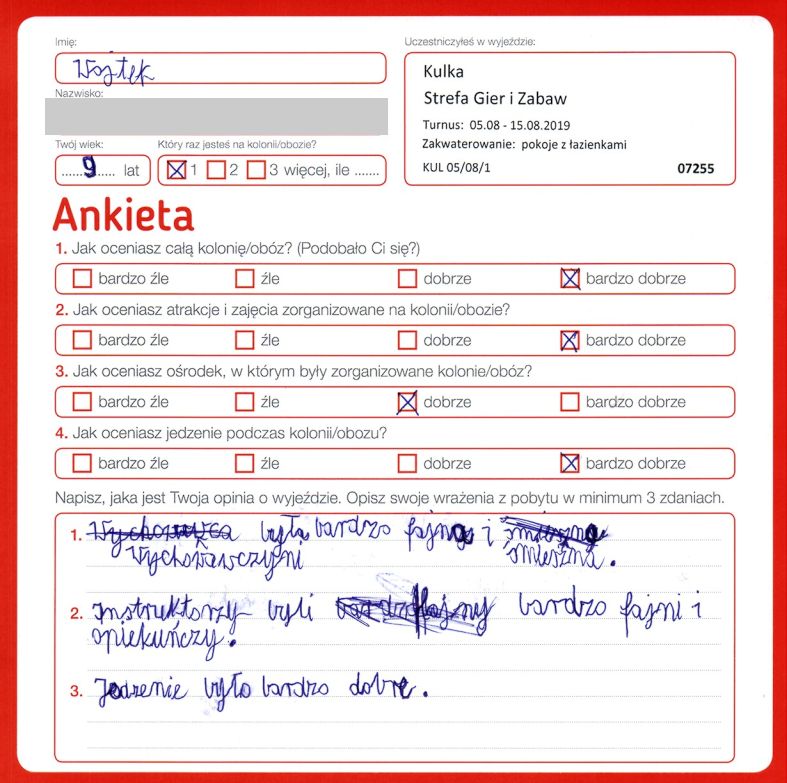 Imię:
Wojtek
Nazwisko:
Twój wiek:
......9...... lat
Który raz jesteś na kolonii/obozie?
1 2 3 więcej, ile .......
Uczestniczyłeś w wyjeździe:
Kulka
Strefa Gier i Zabaw
Turnus: 05.08 - 15.08.2019
Zakwaterowanie: pokoje z łazienkami
KUL 05/08/1 07255
Ankieta
1. Jak oceniasz całą kolonię/obóz? (Podobało Ci się?)
bardzo źle źle dobrze bardzo dobrze
2. Jak oceniasz atrakcje i zajęcia zorganizowane na kolonii/obozie?
bardzo źle źle dobrze bardzo dobrze
3. Jak oceniasz ośrodek, w którym były zorganizowane kolonie/obóz?
bardzo źle źle dobrze bardzo dobrze
4. Jak oceniasz jedzenie podczas kolonii/obozu?
bardzo źle źle dobrze bardzo dobrze
Napisz, jaka jest Twoja opinia o wyjeździe. Opisz swoje wrażenia z pobytu w minimum 3 zdaniach.
1. Wychowawca była bardzo fajna i
Wychowawczyni śmieszna.
2. Instruktorzy byli bardzo fajni i
opiekuńczy.
3. Jedzenie było bardzo dobre.